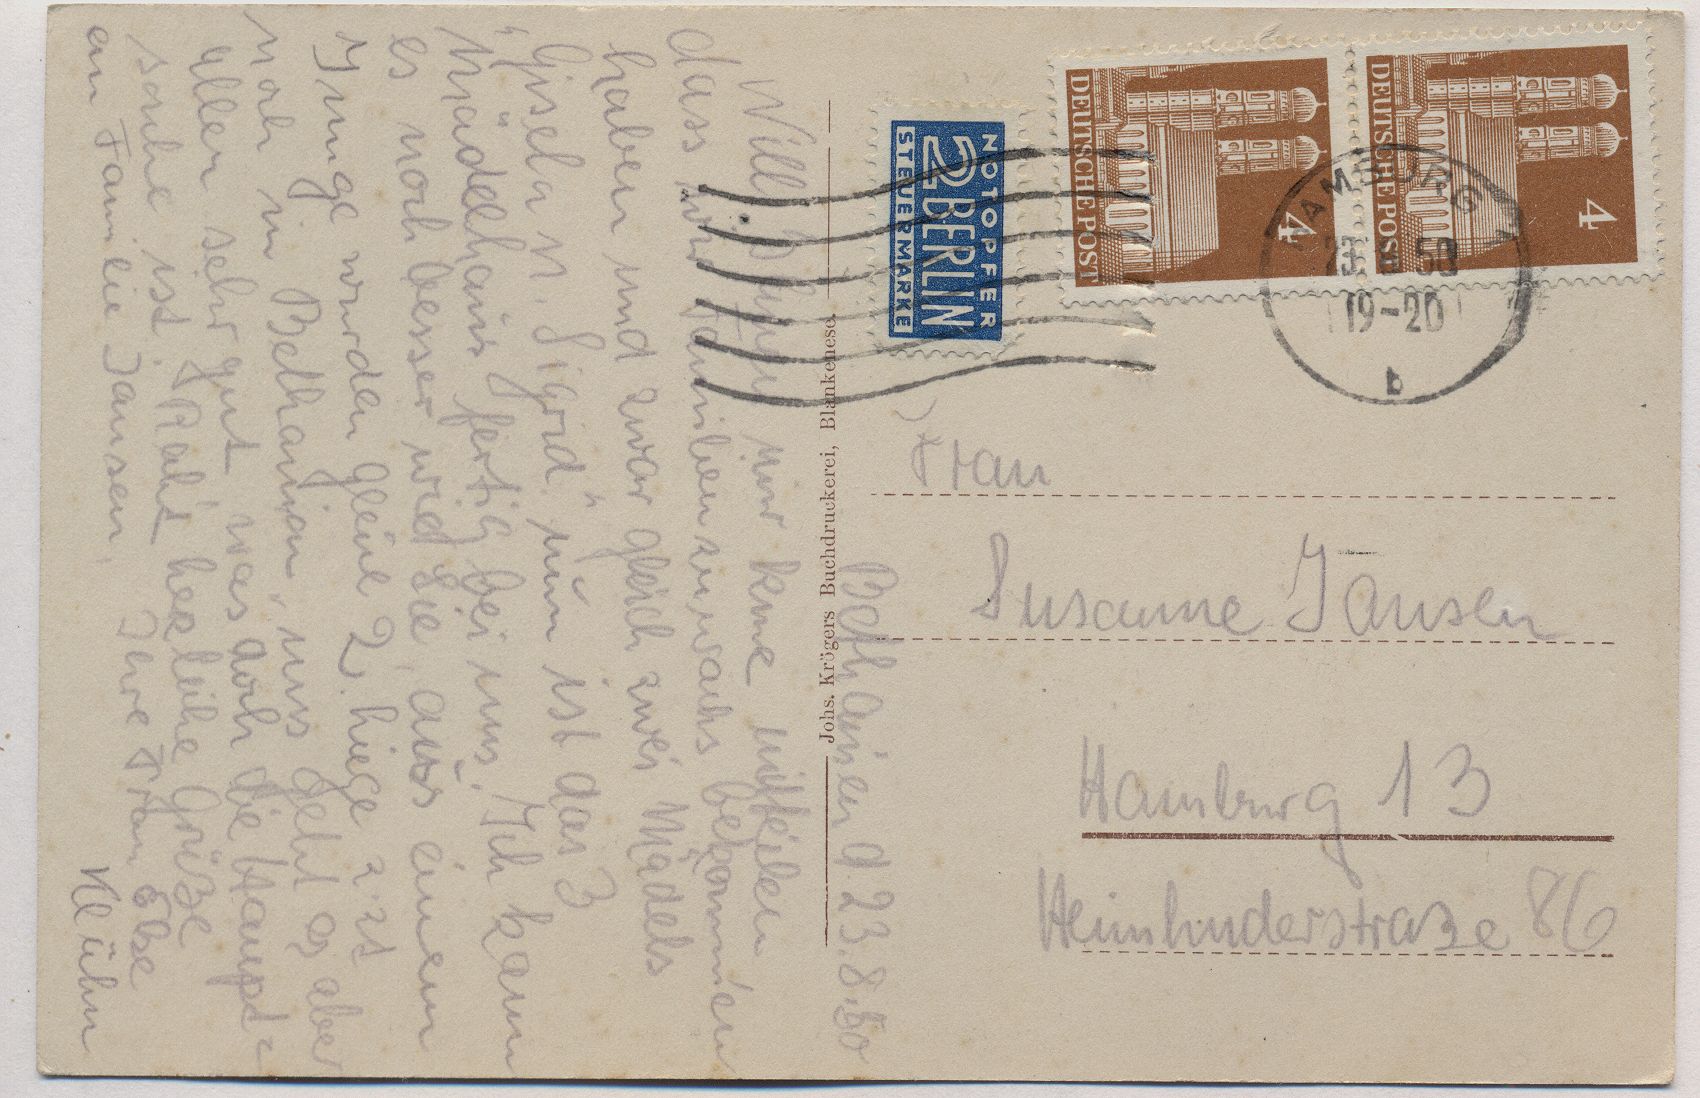 Bethanien d. 23.8.50
Will Ihnen nur kurz mitteilen
dass wir Familienzuwachs bekommen
haben und zwar gleich zwei Mädels
"Gisela u. Sigrid" nun ist das 3
"Mädelhaus" fertig bei uns. Ich kam
es noch besser wird Sie aus einem
Junge wurden gleich 2. liege z. Zt
noch in Bethanien, uns geht es aber
allen sehr gut was doch die Haupt-
sache ist. Recht herzliche Grüße
an Familie Jansen, Ihre Frau Else
Klühn
Johs. Krögers Buchdruckerei, Blankenese.
NOTOPFER
2 BERLIN
STEUERMARKE
DEUTSCHE POST
4
DEUTSCHE POST
4
HAMBURG 1
23. 8. 50
19-20
b
Frau
Susanne Jansen
Hamburg 13
Heimhuderstraße 86